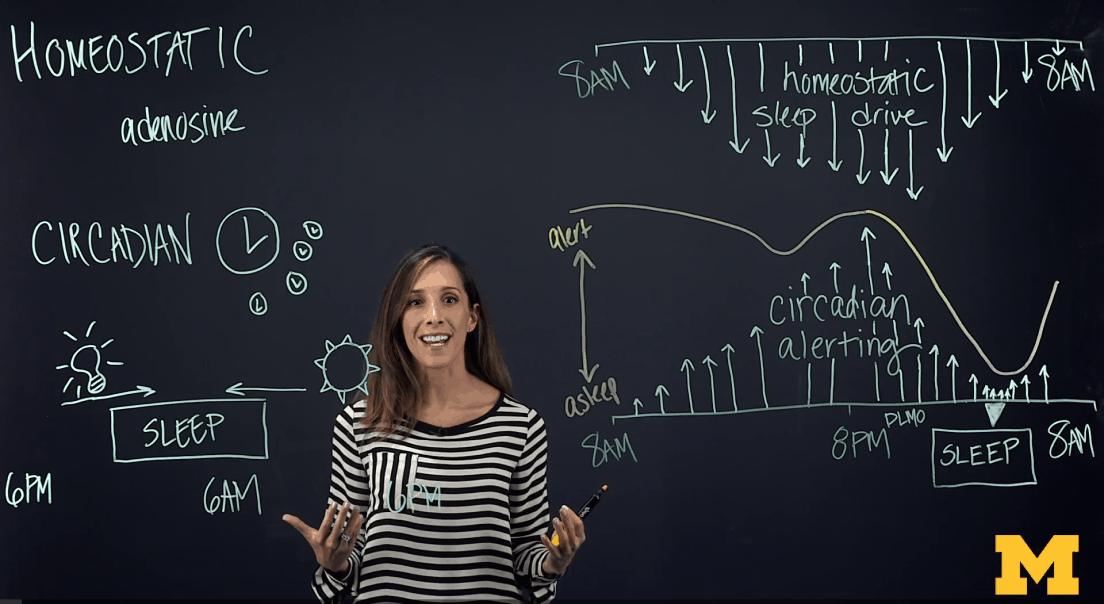 HOMEOSTATIC
adenosine
CIRCADIAN
SLEEP
6PM
6AM
6PM
8AM
8AM
homeostatic
sleep drive
alert
asleep
circadian
alerting
8AM
8PM
DLMO
SLEEP
8AM
M